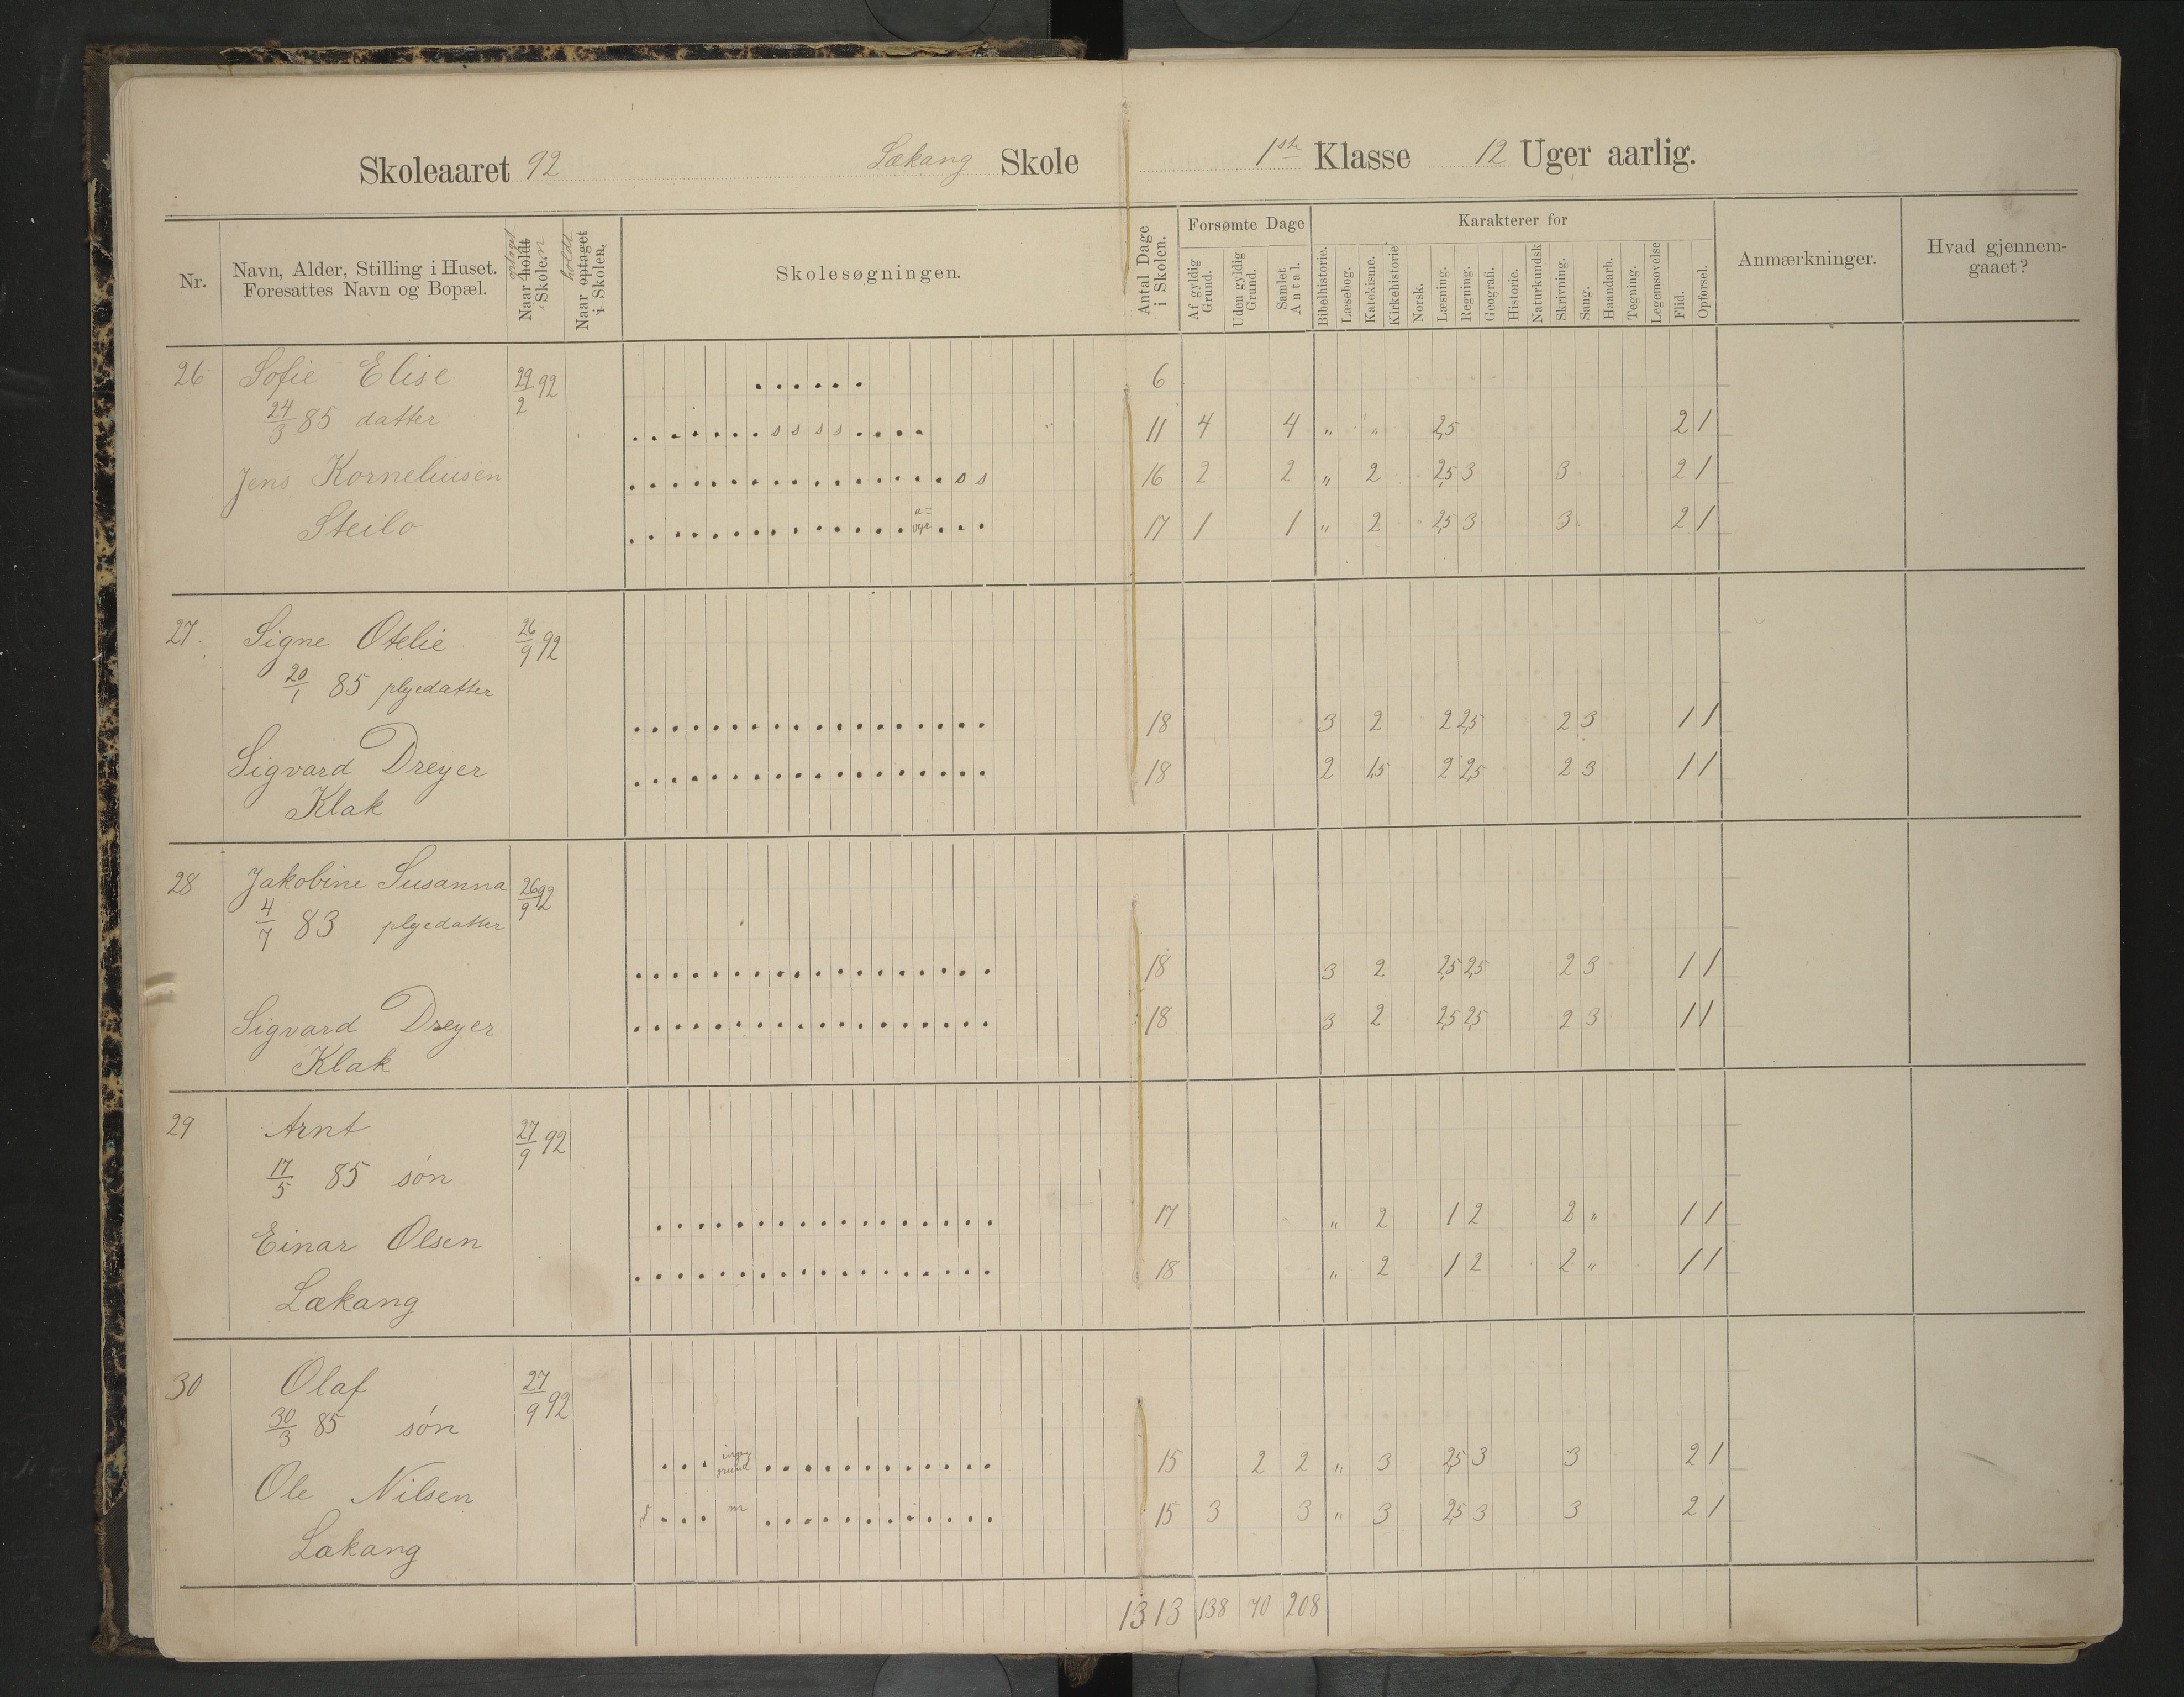 Skoleaaret 92 Lækang Skole 1ste Klasse 12 Uger aarlig.
Nr.
Navn, Alder, Stilling i Huset.
Foresattes Navn og Bopæl.
Naar holdt optaget
i Skolen
Naar optaget holdt
i Skolen.
Skolesøgningen.
Antal Dage
i Skolen.
Forsømte Dage
Af gyldig
Grund.
Uden gyldig
Grund.
Samlet
Antal.
Karakterer for
Bibelhistorie.
Læsebog.
Katekisme.
Kirkehistorie
Norsk.
Læsning.
Regning.
Geografi.
Historie.
Naturkundsk
Skrivning.
Sang.
Haandarb.
Tegning.
Legemsøvelse
Flid.
Opførsel.
Anmærkninger.
Hvad gjennem-
gaaet?
26 Sofie Elise 29/2 92 . . . . . . 6
24/3 85 datter . . . . . . . s s s s . . . . 11 4 4 " " 2,5 2 1
Jens Korneliusen . . . . . . . . . . . . . . . . s s 16 2 2 " 2 2,5 3 3 2 1
Steilo . . . . . . . . . . . . . . . . . 17 1 1 " 2 2,5 3 3 2 1
27 Signe Otelie 26/9 92
20/1 85 plejedatter
. . . . . . . . . . . . . . . . . . 18 3 2 2 2,5 2 3 1 1
Sigvard Dreyer . . . . . . . . . . . . . . . . . . 18 2 1,5 2 2,5 2 3 1 1
Klak
28 Jakobine Susanna 26/9 92
4/7 83 plejedatter
. . . . . . . . . . . . . . . . . . 18 3 2 2,5 2,5 2 3 1 1
Sigvard Dreyer . . . . . . . . . . . . . . . . . . 18 3 2 2,5 2,5 2 3 1 1
Klak
29 Arnt 27/9 92
17/5 85 søn
. . . . . . . . . . . . . . . . . 17 " 2 1 2 2 " 1 1
Einar Olsen
. . . . . . . . . . . . . . . . . . 18 " 2 1 2 2 " 1 1
Lækang
30 Olaf 27/9 92
30/3 85 søn
. . . ingen grund . . . . . . . . . . . . 15 2 2 " 3 2,5 3 3 2 1
Ole Nilsen
. . . m . . . . . . . . . . . . 15 3 3 " 3 2,5 3 3 2 1
Lækang
1313 138 70 208